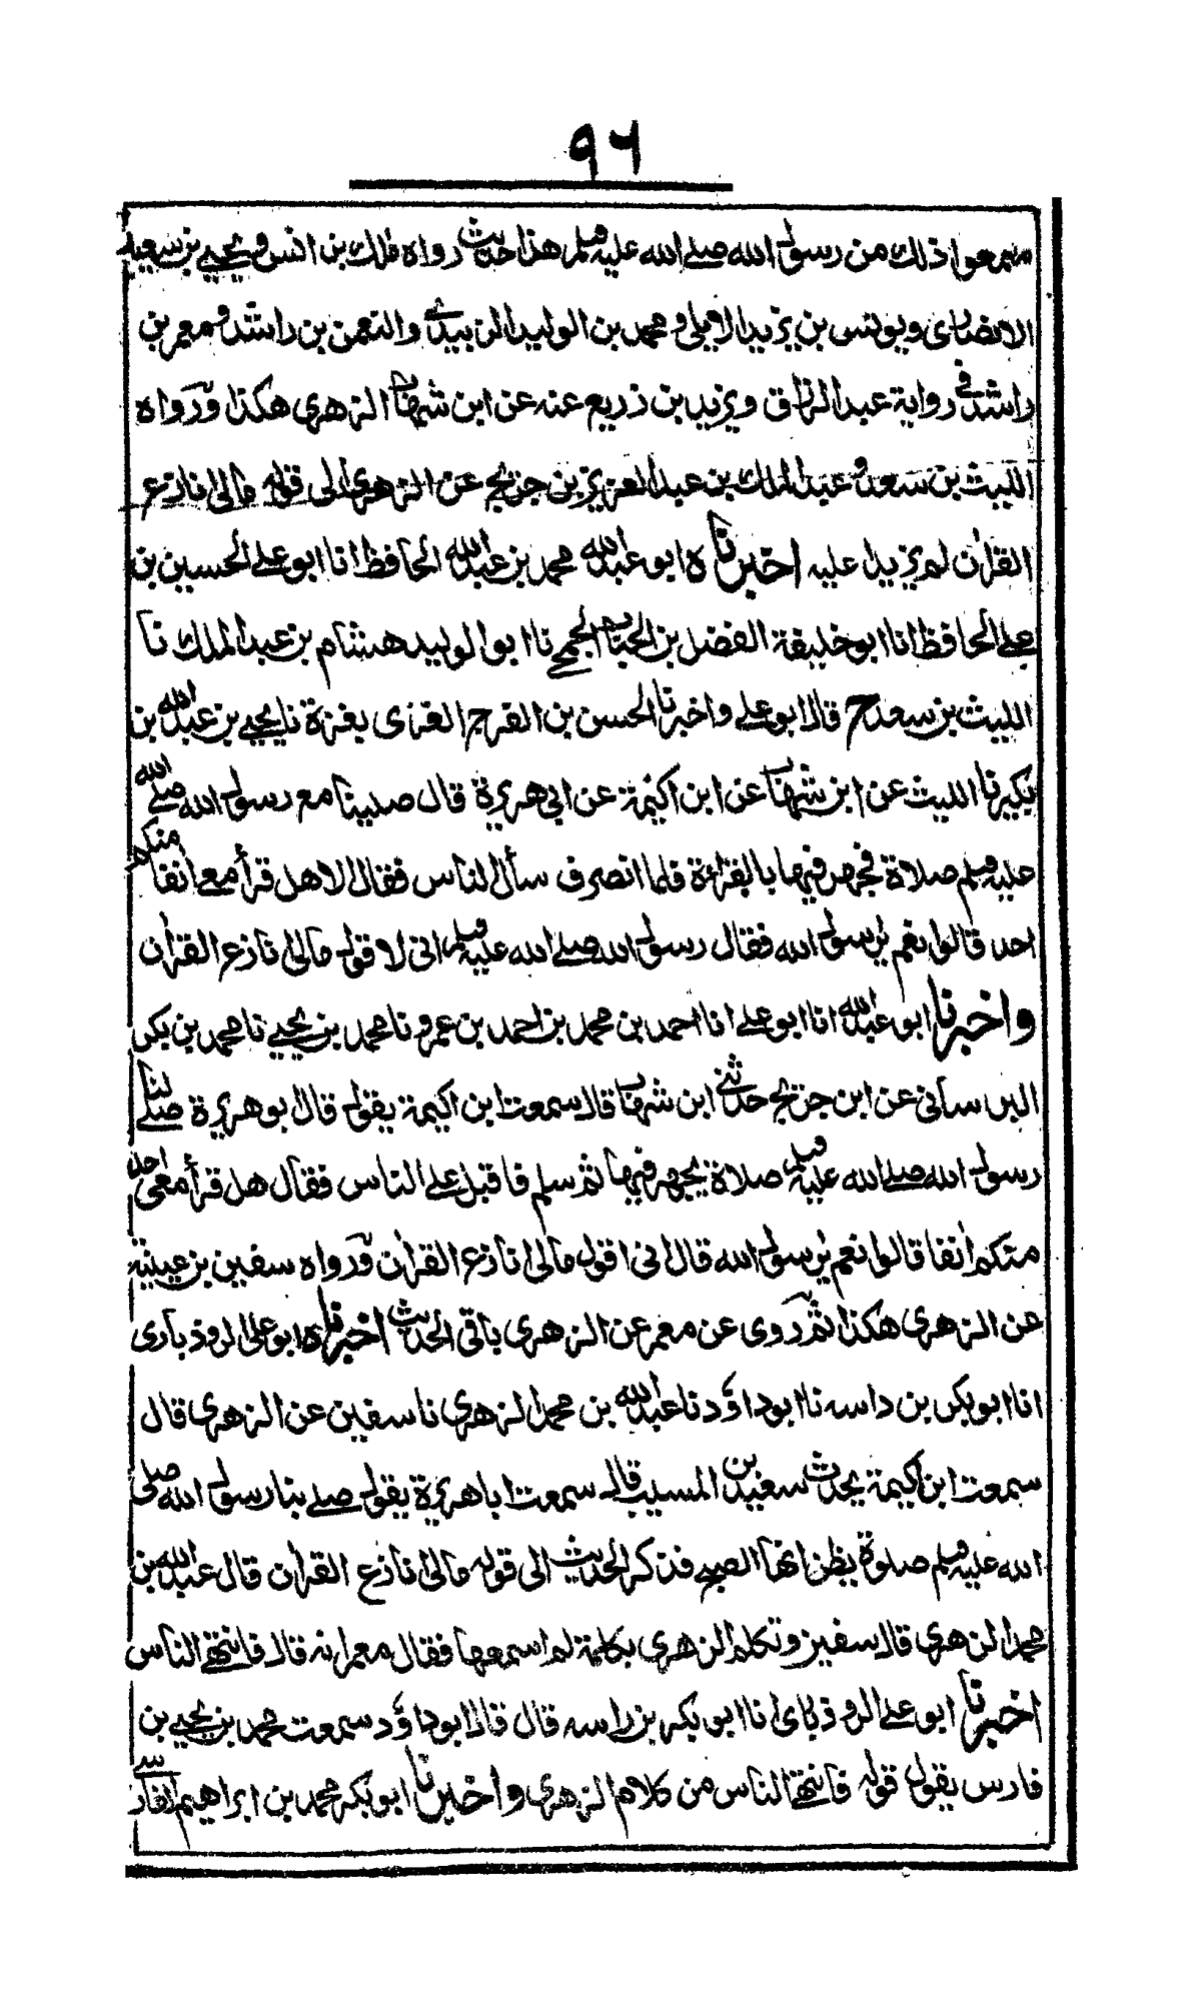 ٩٦
سمعوا ذلك من رسول الله صلے الله عليه وسلم هذا حديث رواه مالك بن انس ويحيے بن سعيد
الانصاري ويونس بن يزيد الايلي و محمد بن الوليد الزبيدي والنعمن بن راشد ومعمر بن
راشد في رواية عبد الرزاق ويزيد بن زريع عنه عن ابن شهاب الزهري هكذا ورواه
الليث بن سعد و عبد الملك بن عبد العزيز بن جريج عن الزهري الى قوله مالى انازع
القرآن لم يزيدا عليه اخبرناه ابو عبد الله محمد بن عبد الله الحافظ انا ابو علے الحسين بن
علے الحافظ انا ابو خليفة الفضل بن الحباب الجمحے نا ابو الوليد هشام بن عبد الملك نا
الليث بن سعد ح قال ابو علے واخبرنا الحسن بن الفرج الغزى بغزة نا يحيے بن عبد الله بن
بكير نا الليث عن ابن شهاب عن ابن اكيمة عن ابى هريرة قال صلينا مع رسول الله صلے الله
عليه وسلم صلاة فجهر فيها بالقراءة فلما انصرف سأل الناس فقال الا هل قرأ معے انفا منكم
احد قالوا نعم يرسول الله فقال رسول الله صلے الله عليه وسلم انى لا قول مالى انازع القرآن
واخبرنا ابو عبد الله انا ابو علے انا احمد بن محمد بن احمد بن عمرو نا محمد بن يحيے نا محمد بن بكر
البرسانى عن ابن جريج حدثنے ابن شهاب قال سمعت ابن اكيمة يقول قال ابو هريرة صلے لنا
رسول الله صلے الله عليه وسلم صلاة يجهر فيها ثم سلم فاقبل علے الناس فقال هل قرأ معى احد
منكم انفا قالوا نعم يرسول الله قال انى اقول مالى انازع القرآن ورواه سفين بن عيينة
عن الزهرى هكذا ثم روى عن معمر عن الزهرى باقى الحديث اخبرناه ابو على الروذبارى
انا ابو بكر بن داسه نا ابو داؤد نا عبد الله بن محمد الزهرى نا سفين عن الزهرى قال
سمعت ابن اكيمة يحدث سعيد بن المسيب قال سمعت ابا هريرة يقول صلے بنا رسول الله صلى
الله عليه وسلم صلوة يظن انها الصبح فذكر الحديث الى قوله مالى انازع القرآن قال عبد الله بن
محمد الزهرى قال سفين وتكلم الزهرى بكلمة لم اسمعها فقال معمر انه قال فانتهے الناس
اخبرنا ابو علے الروذباى انا ابو بكر بن راسه قال قال ابو داؤد سمعت محمد بن يحيے بن
فارس يقول قوله فانتهے الناس من كلام الزهرى واخبرنا ابو بكر محمد بن ابراهيم الفارسے